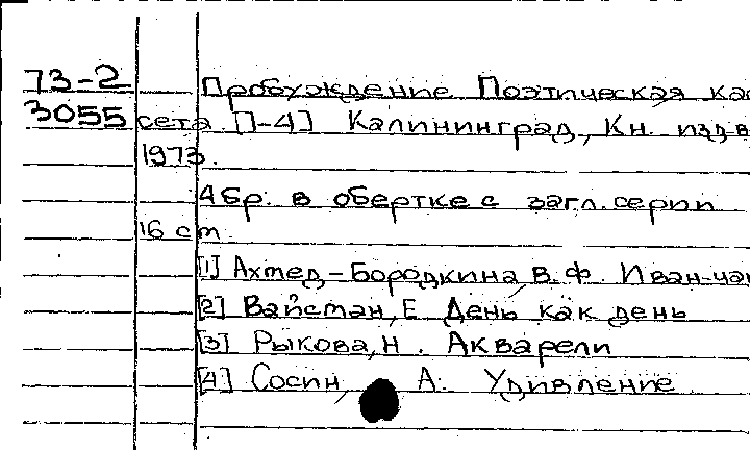 73-2
3055
Пробуждение Поэтическая кас
сета [1-4] Калининград, Кн. изд-в
1973.
4 бр. в обертке с загл. серии
16 см.
[1] Ахмед-Бородкина, В. Ф. Иван-чай
[2] Вайсман, Е. День как день
[3] Рыкова, Н. Акварели
[4] Сосин, А. Удивление